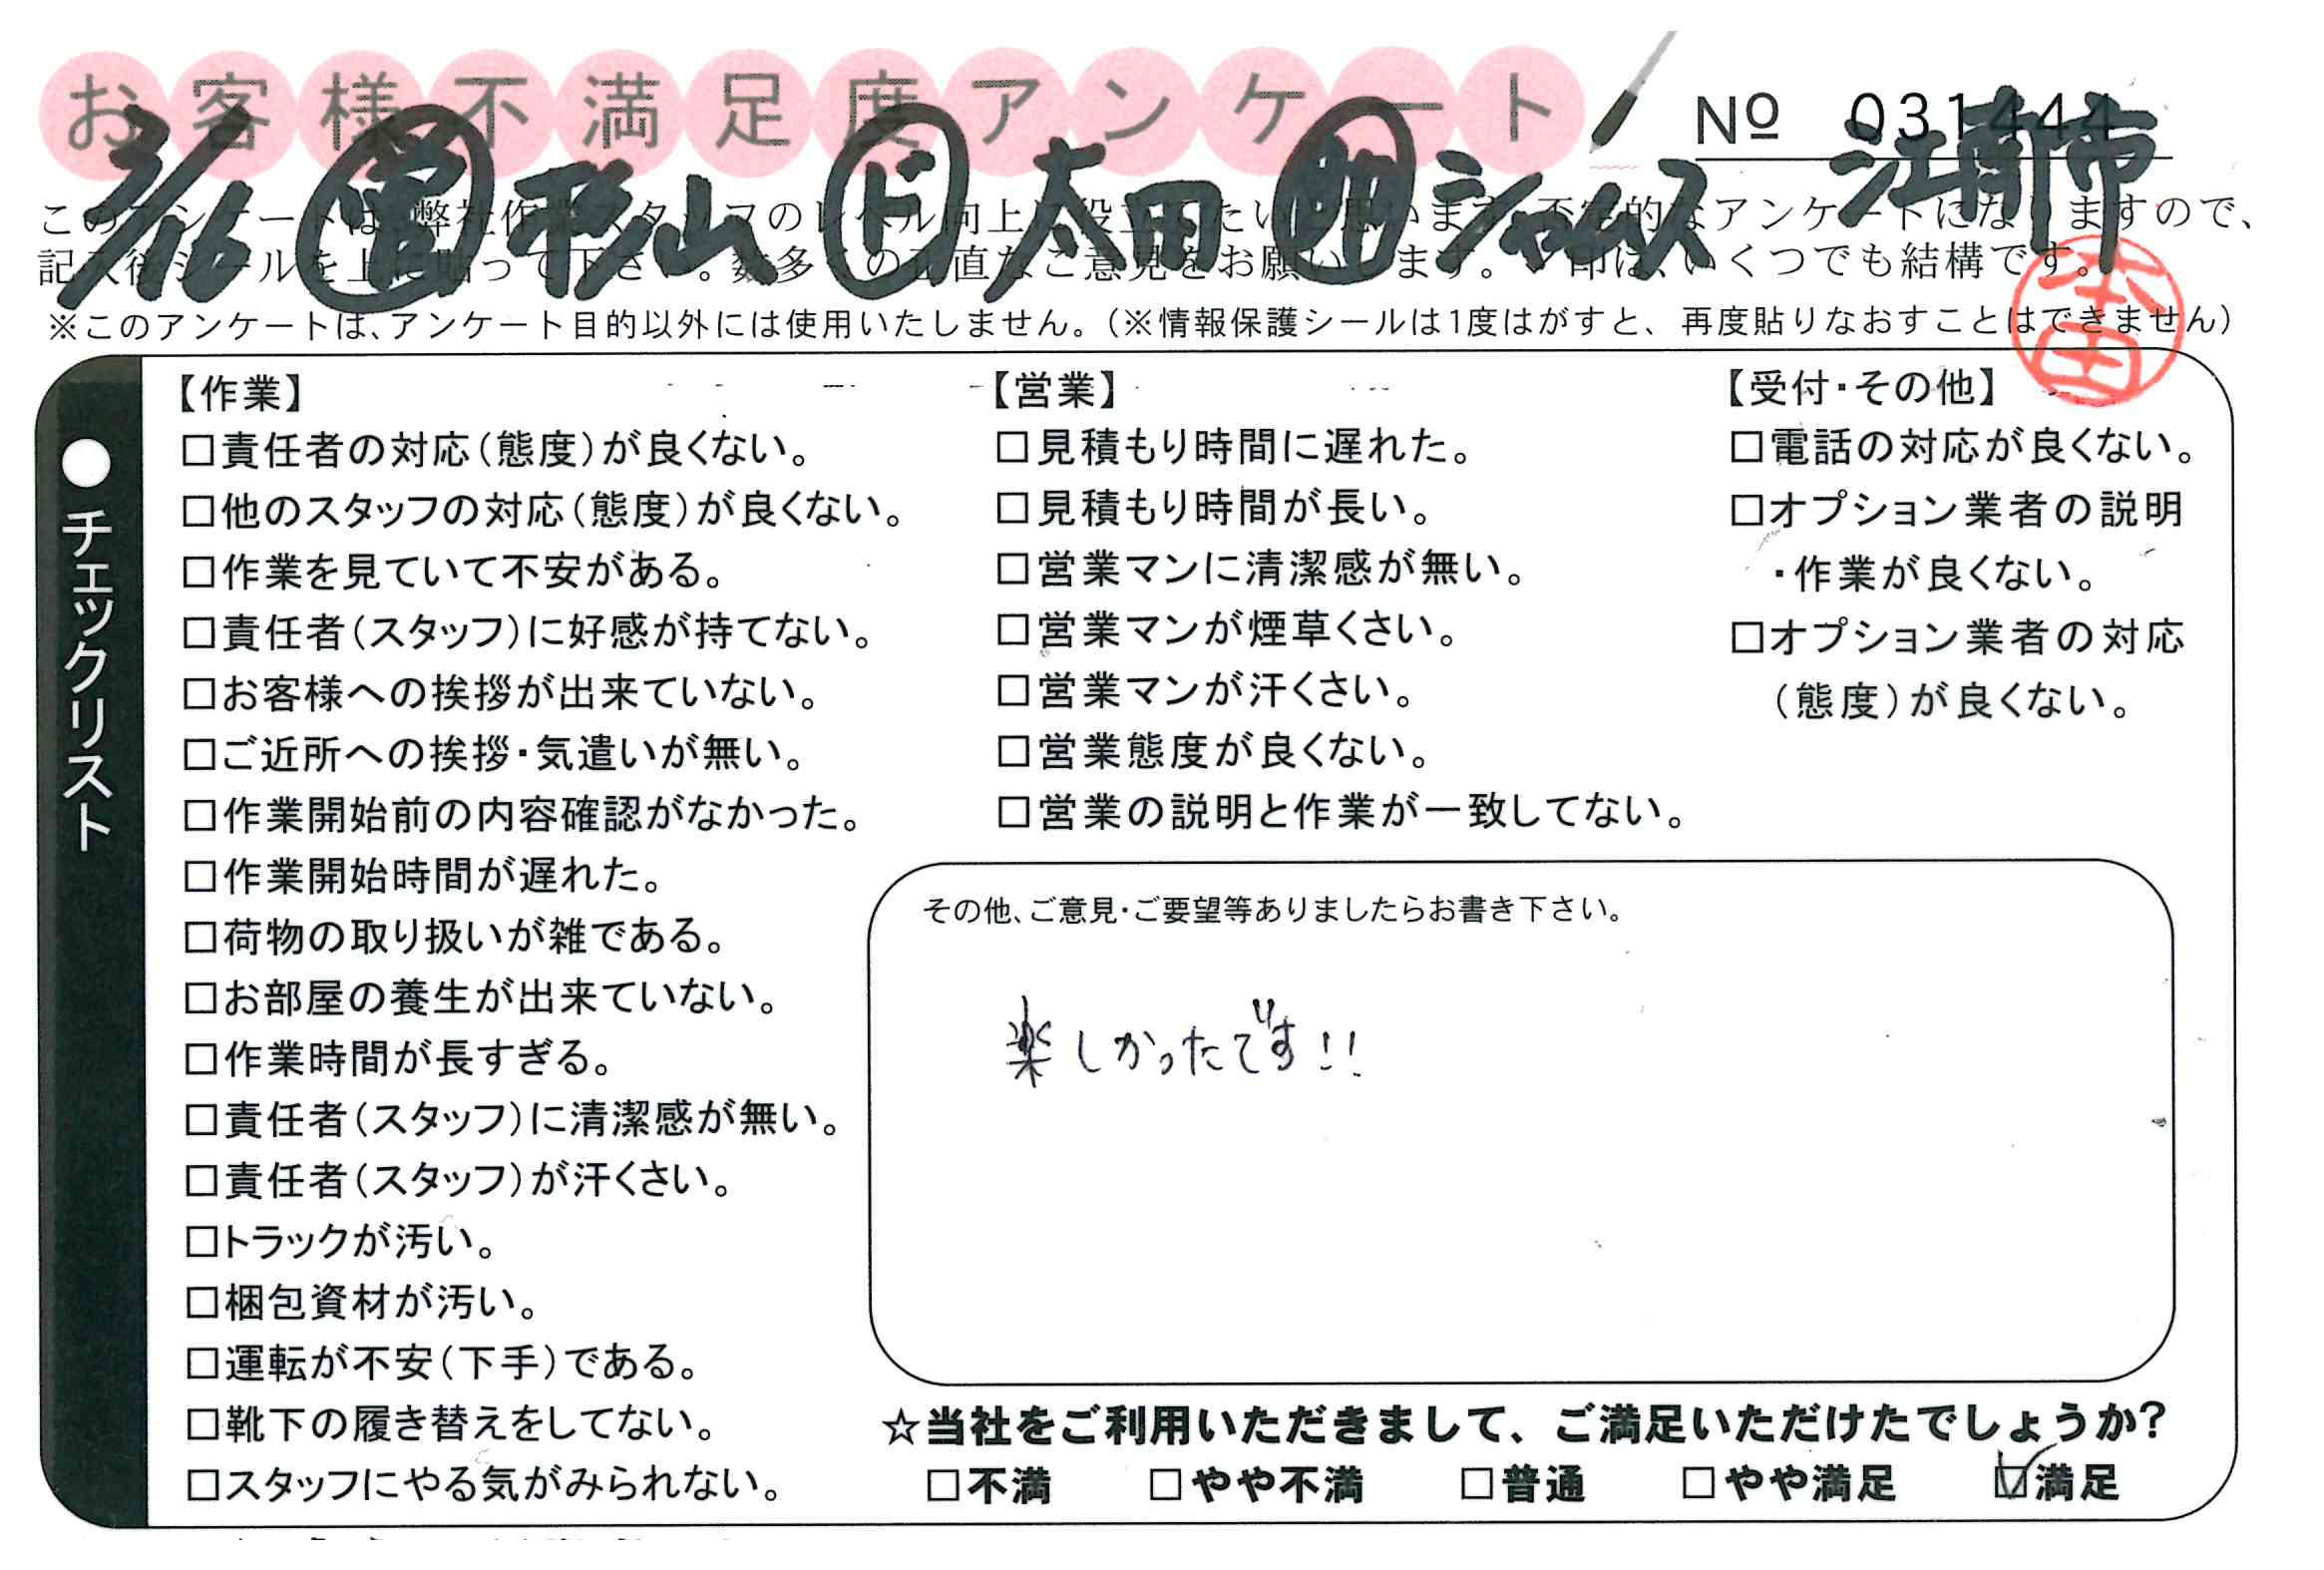 お客様不満足度アンケート
№ 031444
3/16 営 形山 ド 太田 助 シャムス 江南市
このアンケートは、弊社作業スタッフのレベル向上に役立てたいと思います。否定的なアンケートになりますので、
記入後シールを上に貼って下さい。数多くの正直なご意見をお願いします。レ印は、いくつでも結構です。
本田
※このアンケートは、アンケート目的以外には使用いたしません。(※情報保護シールは1度はがすと、再度貼りなおすことはできません)
●チェックリスト
【作業】
□責任者の対応(態度)が良くない。
□他のスタッフの対応(態度)が良くない。
□作業を見ていて不安がある。
□責任者(スタッフ)に好感が持てない。
□お客様への挨拶が出来ていない。
□ご近所への挨拶・気遣いが無い。
□作業開始前の内容確認がなかった。
□作業開始時間が遅れた。
□荷物の取り扱いが雑である。
□お部屋の養生が出来ていない。
□作業時間が長すぎる。
□責任者(スタッフ)に清潔感が無い。
□責任者(スタッフ)が汗くさい。
□トラックが汚い。
□梱包資材が汚い。
□運転が不安(下手)である。
□靴下の履き替えをしてない。
□スタッフにやる気がみられない。
【営業】
□見積もり時間に遅れた。
□見積もり時間が長い。
□営業マンに清潔感が無い。
□営業マンが煙草くさい。
□営業マンが汗くさい。
□営業態度が良くない。
□営業の説明と作業が一致してない。
【受付・その他】
□電話の対応が良くない。
□オプション業者の説明
・作業が良くない。
□オプション業者の対応
(態度)が良くない。
その他、ご意見・ご要望等ありましたらお書き下さい。
楽しかったです!!
☆当社をご利用いただきまして、ご満足いただけたでしょうか?
□不満 □やや不満 □普通 □やや満足 ☑満足